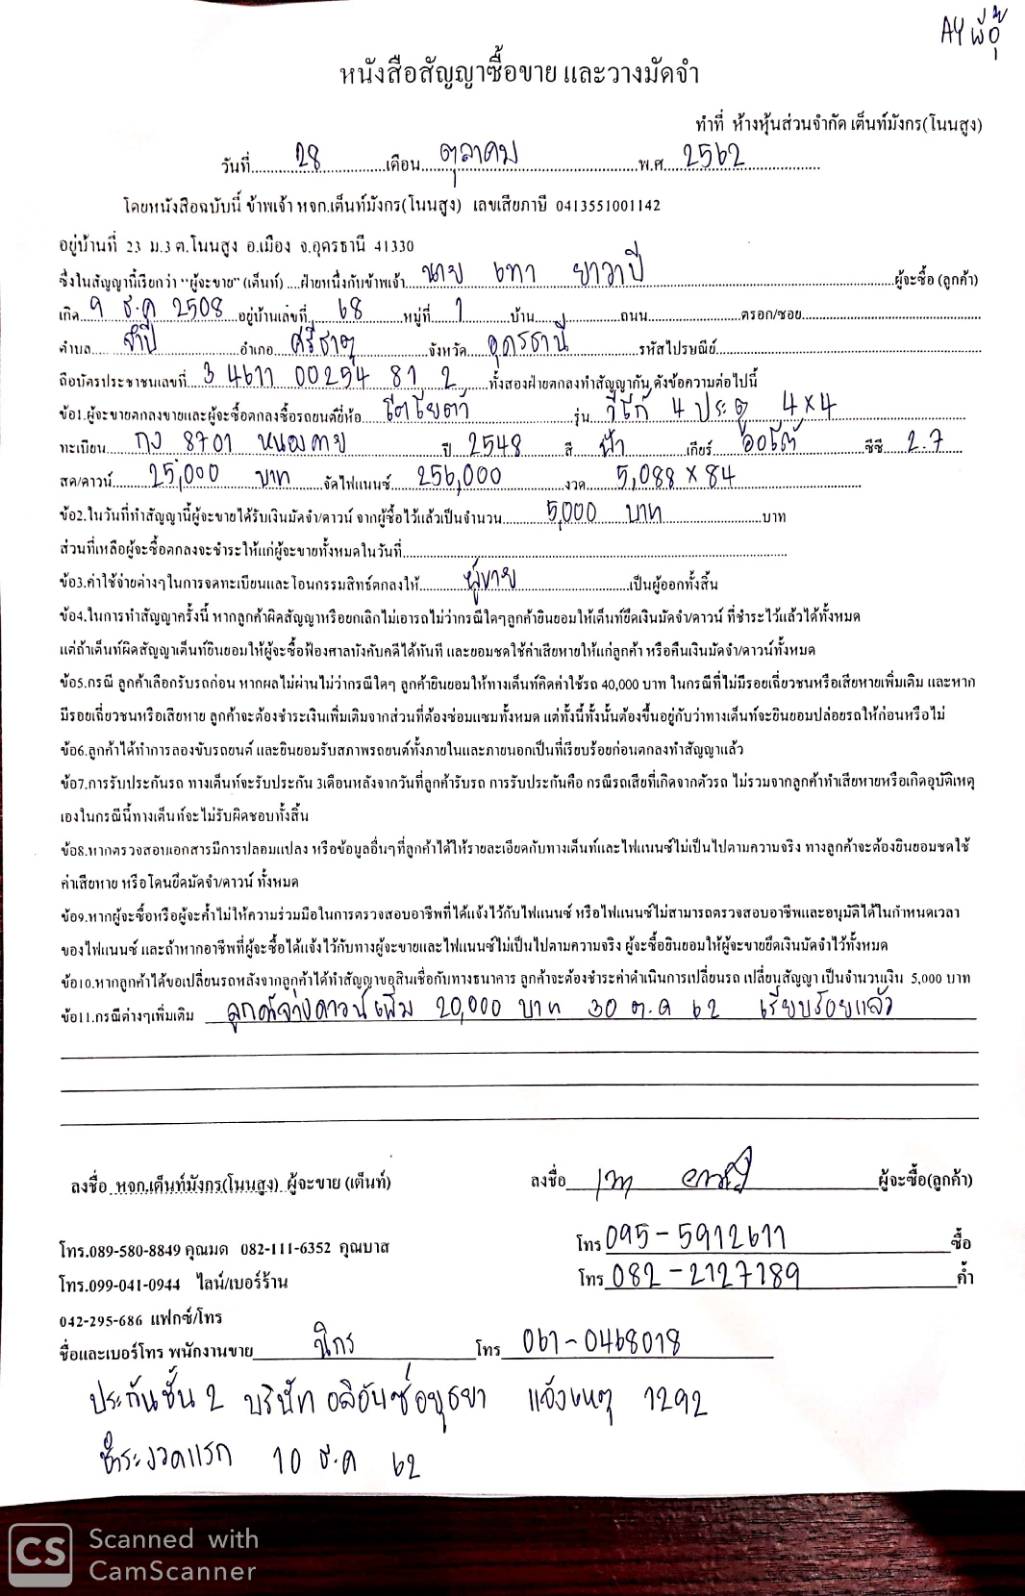 AY พี่อุ้
หนังสือสัญญาซื้อขาย และวางมัดจำ
ทำที่ ห้างหุ้นส่วนจำกัด เต็นท์มังกร(โนนสูง)
วันที่ 28 เดือน ตุลาคม พ.ศ. 2562
โดยหนังสือฉบับนี้ ข้าพเจ้า หจก.เต็นท์มังกร(โนนสูง) เลขเสียภาษี 0413551001142
อยู่บ้านที่ 23 ม.3 ต.โนนสูง อ.เมือง จ.อุดรธานี 41330
ซึ่งในสัญญานี้เรียกว่า "ผู้จะขาย" (เต็นท์) ....ฝ่ายหนึ่งกับข้าพเจ้า นาย เทา ยาวาปี ผู้จะซื้อ (ลูกค้า)
เกิด 9 ธ.ค 2508 อยู่บ้านเลขที่ 68 หมู่ที่ 1 บ้าน ถนน ตรอก/ซอย
ตำบล จำปี อำเภอ ศรีธาตุ จังหวัด อุดรธานี รหัสไปรษณีย์
ถือบัตรประชาชนเลขที่ 3 4611 00254 81 2 ทั้งสองฝ่ายตกลงทำสัญญากัน ดังข้อความต่อไปนี้
ข้อ1.ผู้จะขายตกลงขายและผู้จะซื้อตกลงซื้อรถยนต์ยี่ห้อ โตโยต้า รุ่น วีโก้ 4 ประตู 4×4
ทะเบียน กง 8701 หนองคาย ปี 2548 สี ฟ้า เกียร์ ออโต้ ซีซี 2.7
สด/ดาวน์ 25,000 บาท จัดไฟแนนซ์ 256,000 งวด 5,088 × 84
ข้อ2.ในวันที่ทำสัญญานี้ผู้จะขายได้รับเงินมัดจำ/ดาวน์ จากผู้ซื้อไว้แล้วเป็นจำนวน 5,000 บาท บาท
ส่วนที่เหลือผู้จะซื้อตกลงจะชำระให้แก่ผู้จะขายทั้งหมดในวันที่
ข้อ3.ค่าใช้จ่ายต่างๆในการจดทะเบียนและโอนกรรมสิทธ์ตกลงให้ ผู้ขาย เป็นผู้ออกทั้งสิ้น
ข้อ4.ในการทำสัญญาครั้งนี้ หากลูกค้าผิดสัญญาหรือยกเลิกไม่เอารถไม่ว่ากรณีใดๆลูกค้ายินยอมให้เต็นท์ยึดเงินมัดจำ/ดาวน์ ที่ชำระไว้แล้วได้ทั้งหมด
แต่ถ้าเต็นท์ผิดสัญญาเต็นท์ยินยอมให้ผู้จะซื้อฟ้องศาลบังคับคดีได้ทันที และยอมชดใช้ค่าเสียหายให้แก่ลูกค้า หรือคืนเงินมัดจำ/ดาวน์ทั้งหมด
ข้อ5.กรณี ลูกค้าเลือกรับรถก่อน หากผลไม่ผ่านไม่ว่ากรณีใดๆ ลูกค้ายินยอมให้ทางเต็นท์คิดค่าใช้รถ 40,000 บาท ในกรณีที่ไม่มีรอยเฉี่ยวชนหรือเสียหายเพิ่มเติม และหาก
มีรอยเฉี่ยวชนหรือเสียหาย ลูกค้าจะต้องชำระเงินเพิ่มเติมจากส่วนที่ต้องซ่อมแซมทั้งหมด แต่ทั้งนี้ทั้งนั้นต้องขึ้นอยู่กับว่าทางเต็นท์จะยินยอมปล่อยรถให้ก่อนหรือไม่
ข้อ6.ลูกค้าได้ทำการลองขับรถยนต์ และยินยอมรับสภาพรถยนต์ทั้งภายในและภายนอกเป็นที่เรียบร้อยก่อนตกลงทำสัญญาแล้ว
ข้อ7.การรับประกันรถ ทางเต็นท์จะรับประกัน 3เดือนหลังจากวันที่ลูกค้ารับรถ การรับประกันคือ กรณีรถเสียที่เกิดจากตัวรถ ไม่รวมจากลูกค้าทำเสียหายหรือเกิดอุบัติเหตุ
เองในกรณีนี้ทางเต็นท์จะไม่รับผิดชอบทั้งสิ้น
ข้อ8.หากตรวจสอบเอกสารมีการปลอมแปลง หรือข้อมูลอื่นๆที่ลูกค้าได้ให้รายละเอียดกับทางเต็นท์และไฟแนนซ์ไม่เป็นไปตามความจริง ทางลูกค้าจะต้องยินยอมชดใช้
ค่าเสียหาย หรือโดนยึดมัดจำ/ดาวน์ ทั้งหมด
ข้อ9.หากผู้จะซื้อหรือผู้จะค้ำไม่ให้ความร่วมมือในการตรวจสอบอาชีพที่ได้แจ้งไว้กับไฟแนนซ์ หรือไฟแนนซ์ไม่สามารถตรวจสอบอาชีพและอนุมัติได้ในกำหนดเวลา
ของไฟแนนซ์ และถ้าหากอาชีพที่ผู้จะซื้อได้แจ้งไว้กับทางผู้จะขายและไฟแนนซ์ไม่เป็นไปตามความจริง ผู้จะซื้อยินยอมให้ผู้จะขายยึดเงินมัดจำไว้ทั้งหมด
ข้อ10.หากลูกค้าได้ขอเปลี่ยนรถหลังจากลูกค้าได้ทำสัญญาขอสินเชื่อกับทางธนาคาร ลูกค้าจะต้องชำระค่าดำเนินการเปลี่ยนรถ เปลี่ยนสัญญา เป็นจำนวนเงิน 5,000 บาท
ข้อ11.กรณีต่างๆเพิ่มเติม ลูกค้าจ่ายดาวน์เพิ่ม 20,000 บาท 30 ต.ค 62 เรียบร้อยแล้ว
ลงชื่อ หจก.เต็นท์มังกร(โนนสูง) ผู้จะขาย (เต็นท์) ลงชื่อ เทา ยาวาปี ผู้จะซื้อ(ลูกค้า)
โทร.089-580-8849 คุณมด 082-111-6352 คุณบาส โทร 095-5912611 ซื้อ
โทร.099-041-0944 ไลน์/เบอร์ร้าน โทร 082-2127189 ค้ำ
042-295-686 แฟกซ์/โทร
ชื่อและเบอร์โทร พนักงานขาย นิกร โทร 061-0468018
ประกันชั้น 2 บริษัท อลิอันซ์อยุธยา แจ้งเหตุ 1292
ชำระงวดแรก 10 ธ.ค 62
CS Scanned with
CamScanner